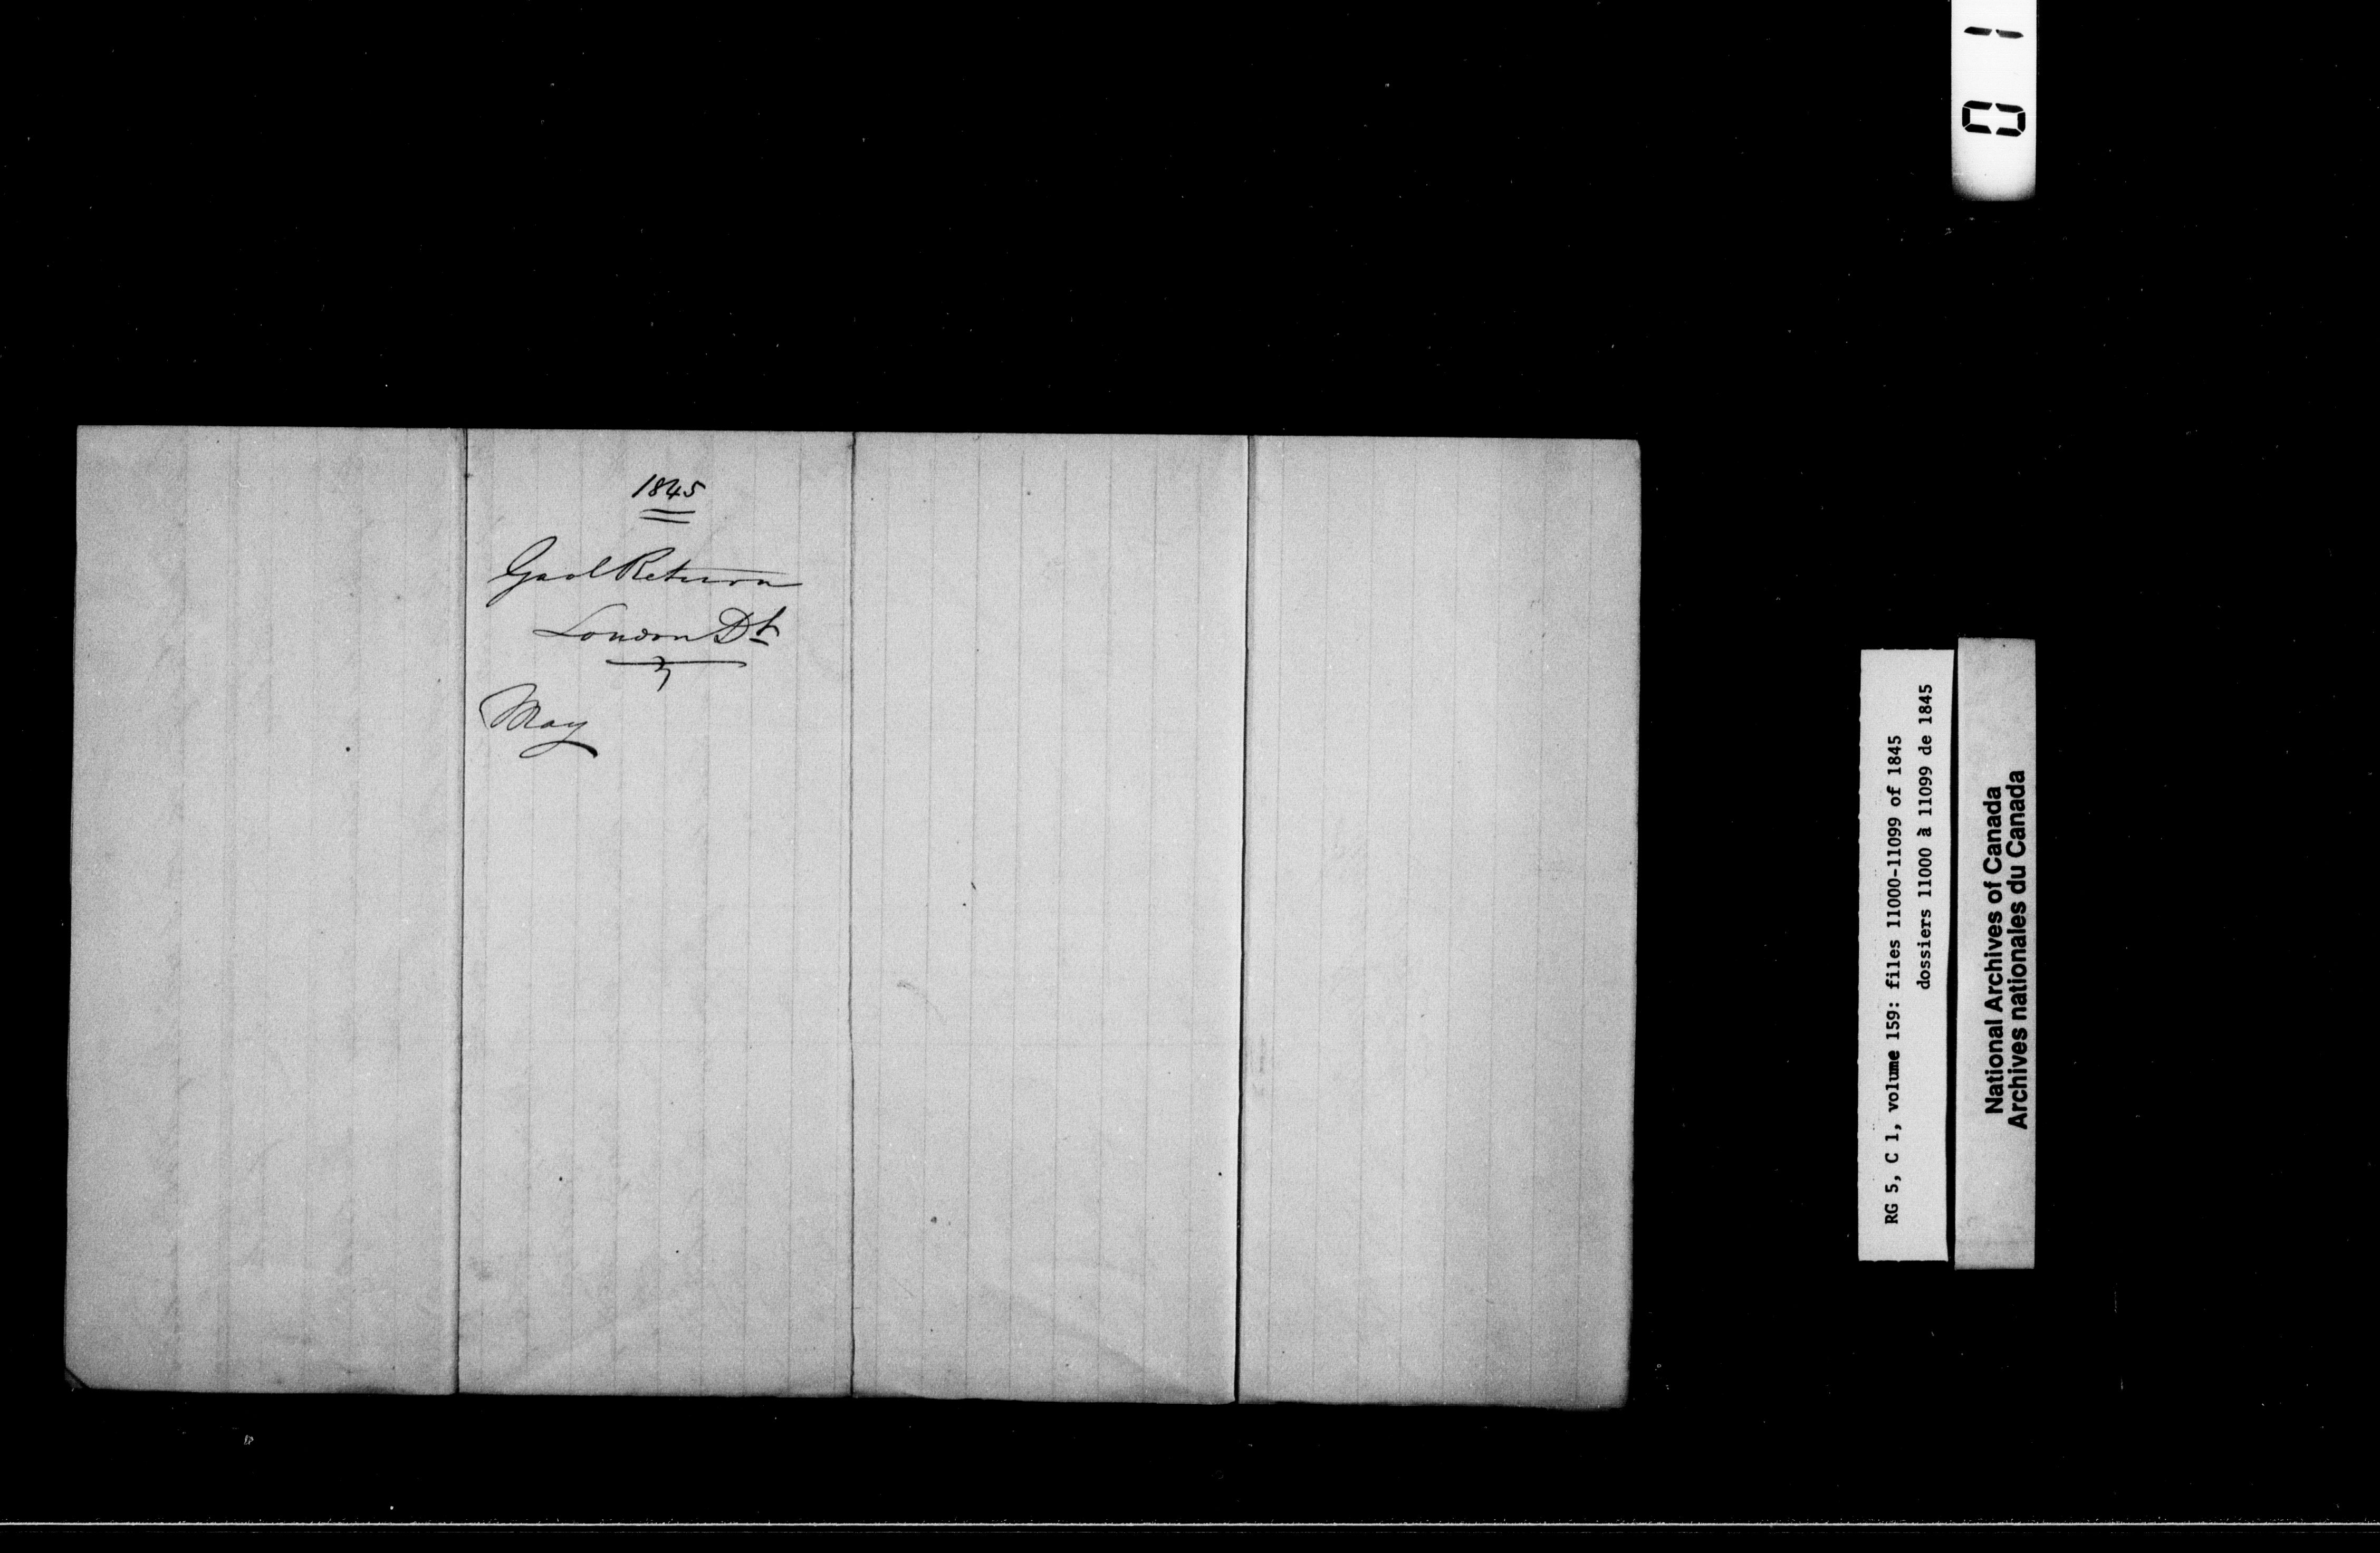 1845
Gaol Return
London Dt
May
RG 5, C 1, volume 159: files 11000-11099 of 1845
dossiers 11000 à 11099 de 1845
National Archives of Canada
Archives nationales du Canada